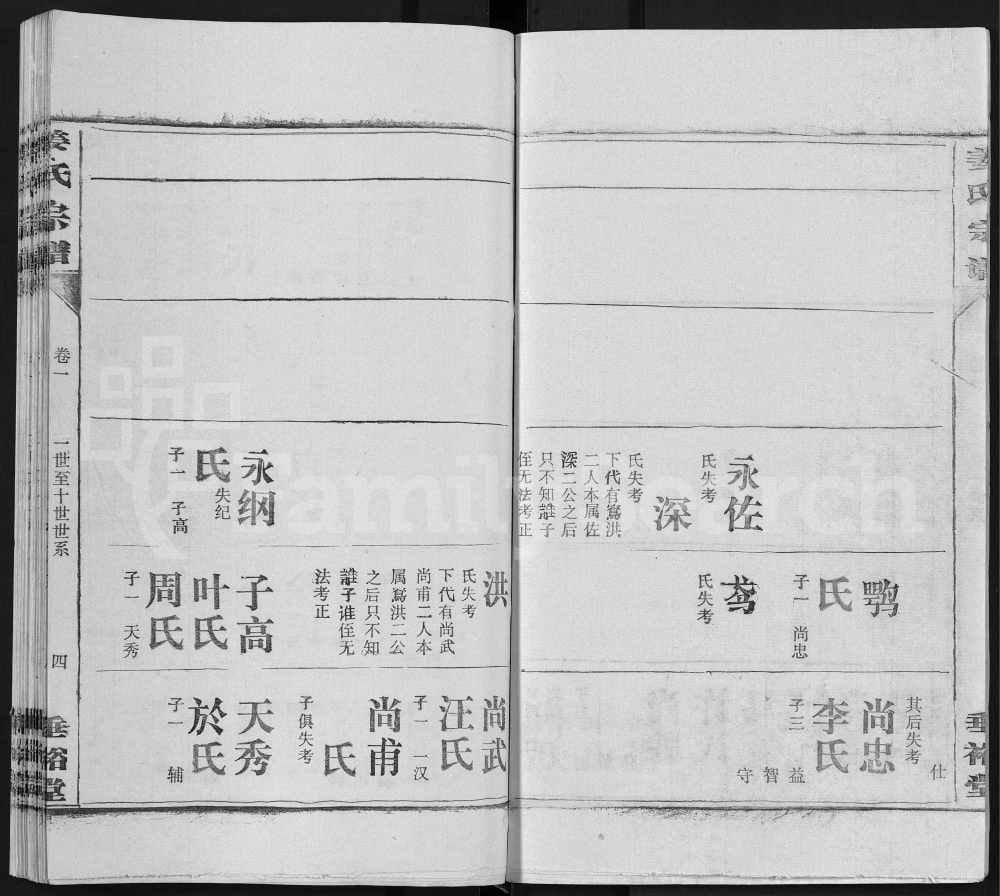 姜氏宗谱
垂裕堂
永佐
氏失考
深
氏失考
下代有寫洪
二人本属佐
深二公之后
只不知誰子
侄无法考正
鹗
氏
子一 尚忠
鸢
氏失考
仕
其后失考
尚忠
李氏
子三 益
智
守
永纲
氏失纪
子一 子高
洪
氏失考
下代有尚武
尚甫二人本
属寫洪二公
之后只不知
誰子谁侄无
法考正
子高
叶氏
周氏
子一 天秀
尚武
汪氏
子一 一汉
尚甫
氏
子俱失考
天秀
於氏
子一 辅
姜氏宗譜
卷一
一世至十世世系
四
垂裕堂
FamilySearch